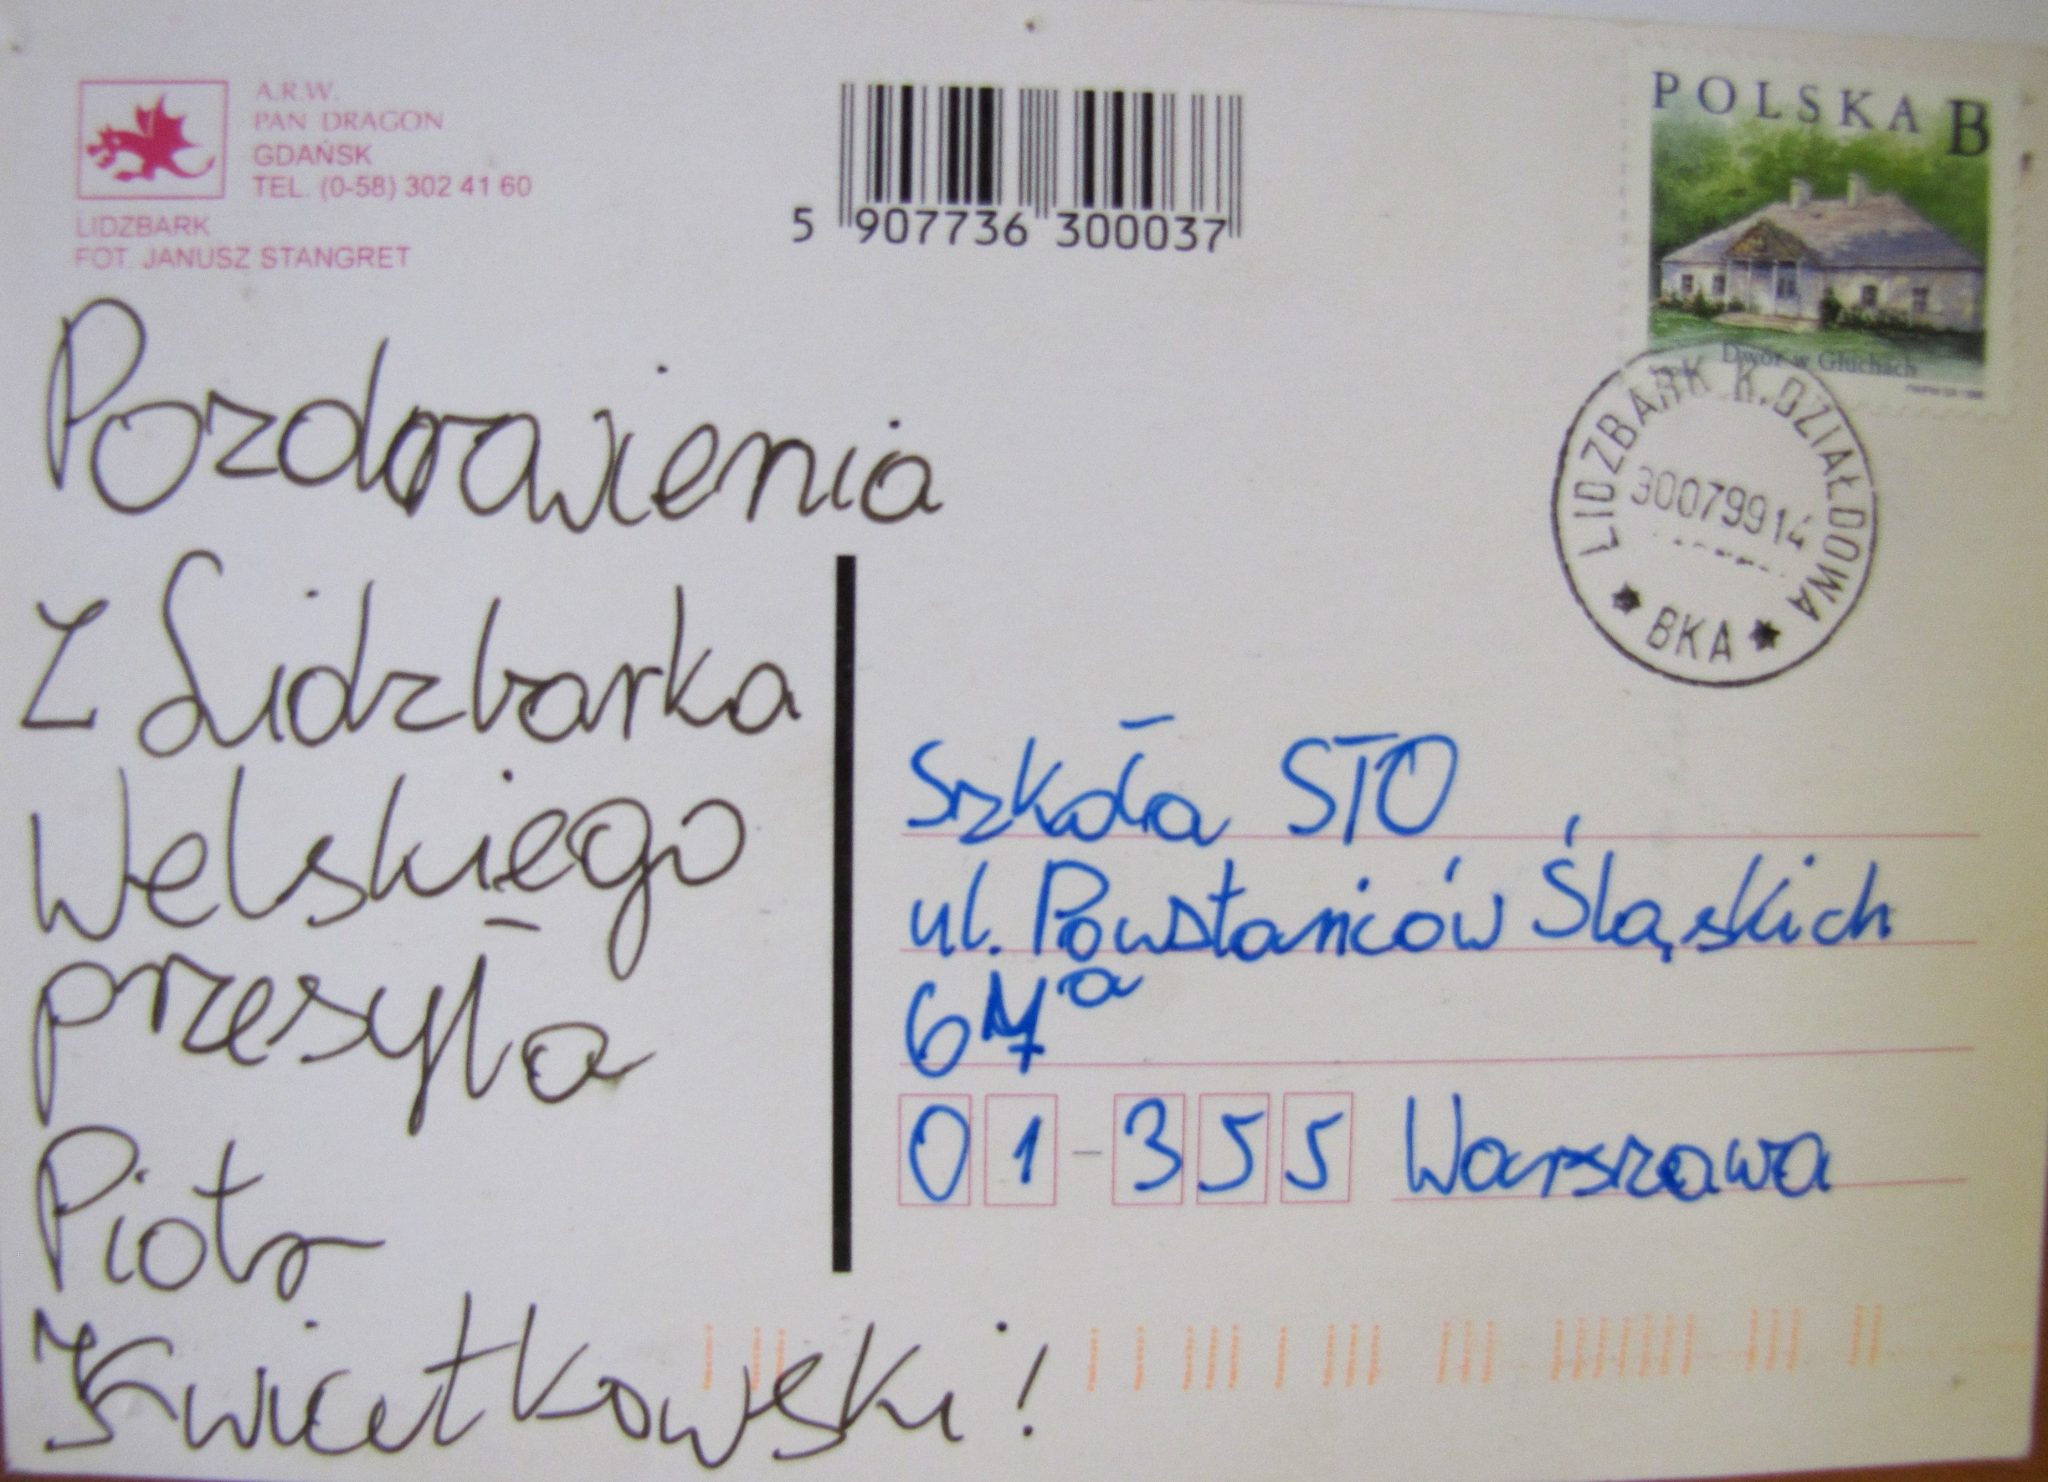 A.R.W.
PAN DRAGON
GDAŃSK
TEL. (0-58) 302 41 60
LIDZBARK
FOT. JANUSZ STANGRET
5 907736 300037
POLSKA B
Dwór w Głuchach
LIDZBARK K.DZIAŁDOWA
30079914
* BKA *
Pozdrowienia
z Lidzbarka
Welskiego
przesyła
Piotr
Kwiatkowski!
Szkoła STO
ul. Powstańców Śląskich
67a
01-355 Warszawa